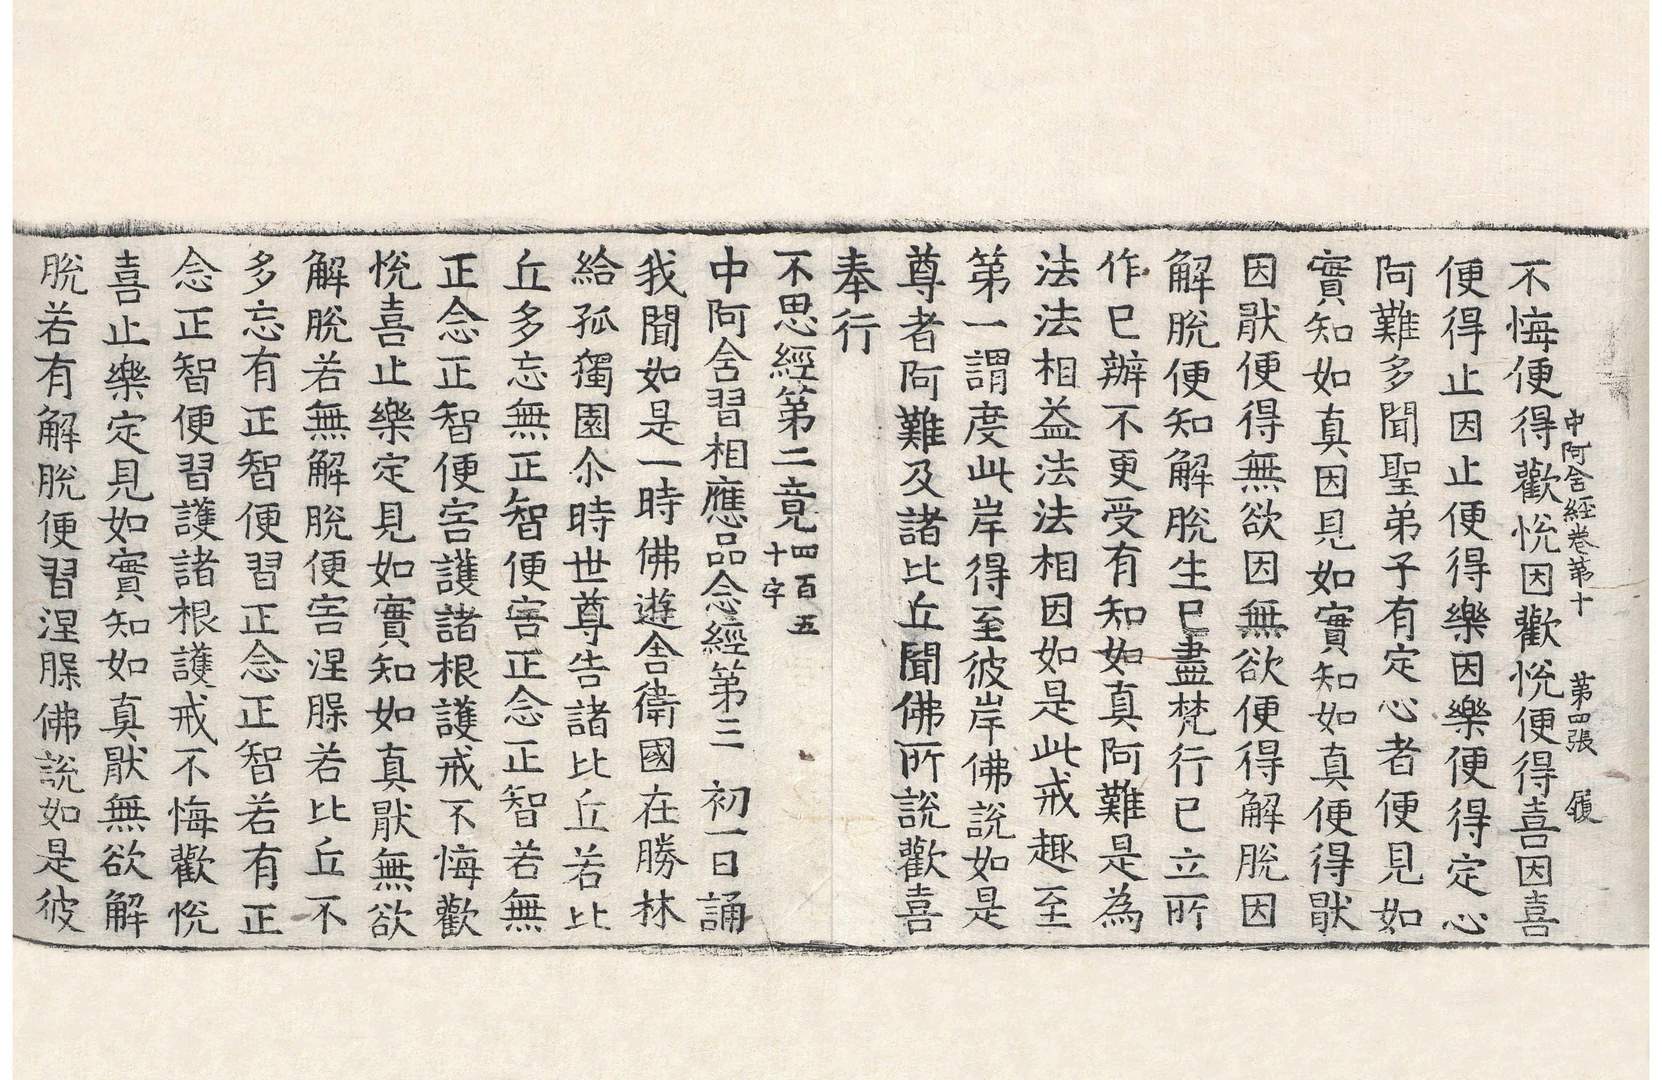 中阿含經卷第十 第四張 履
不悔便得歡悅因歡悅便得喜因喜
便得止因止便得樂因樂便得定心
阿難多聞聖弟子有定心者便見如
實知如真因見如實知如真便得猒
因猒便得無欲因無欲便得解脫因
解脫便知解脫生已盡梵行已立所
作已辦不更受有知如真阿難是為
法法相益法法相因如是此戒趣至
第一謂度此岸得至彼岸佛說如是
尊者阿難及諸比丘聞佛所說歡喜
奉行
不思經第二竟四百五
十字
中阿含習相應品念經第三 初一日誦
我聞如是一時佛遊舍衛國在勝林
給孤獨園尒時世尊告諸比丘若比
丘多忘無正智便害正念正智若無
正念正智便害護諸根護戒不悔歡
悅喜止樂定見如實知如真猒無欲
解脫若無解脫便害涅槃若比丘不
多忘有正智便習正念正智若有正
念正智便習護諸根護戒不悔歡悅
喜止樂定見如實知如真猒無欲解
脫若有解脫便習涅槃佛說如是彼